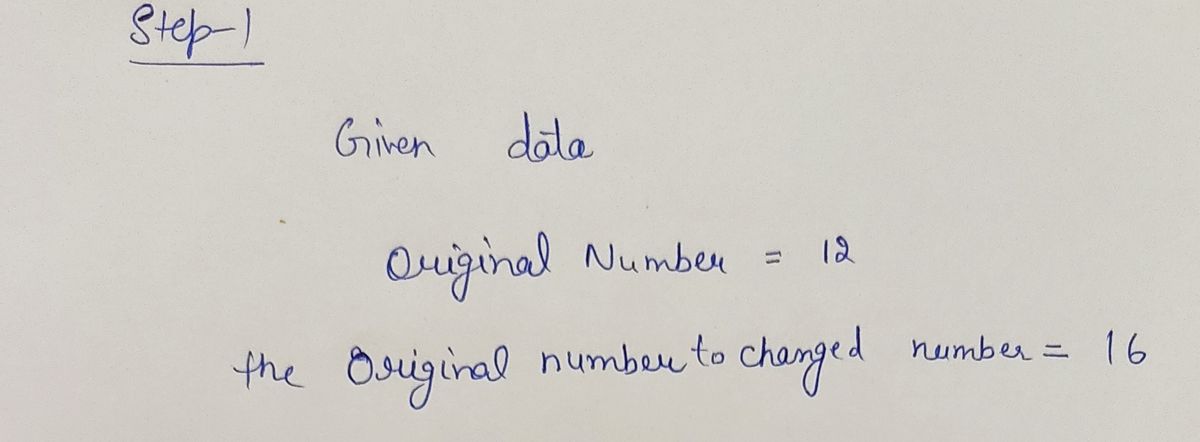 Step-1
Given data
Original Number = 12
the Original number to changed number = 16